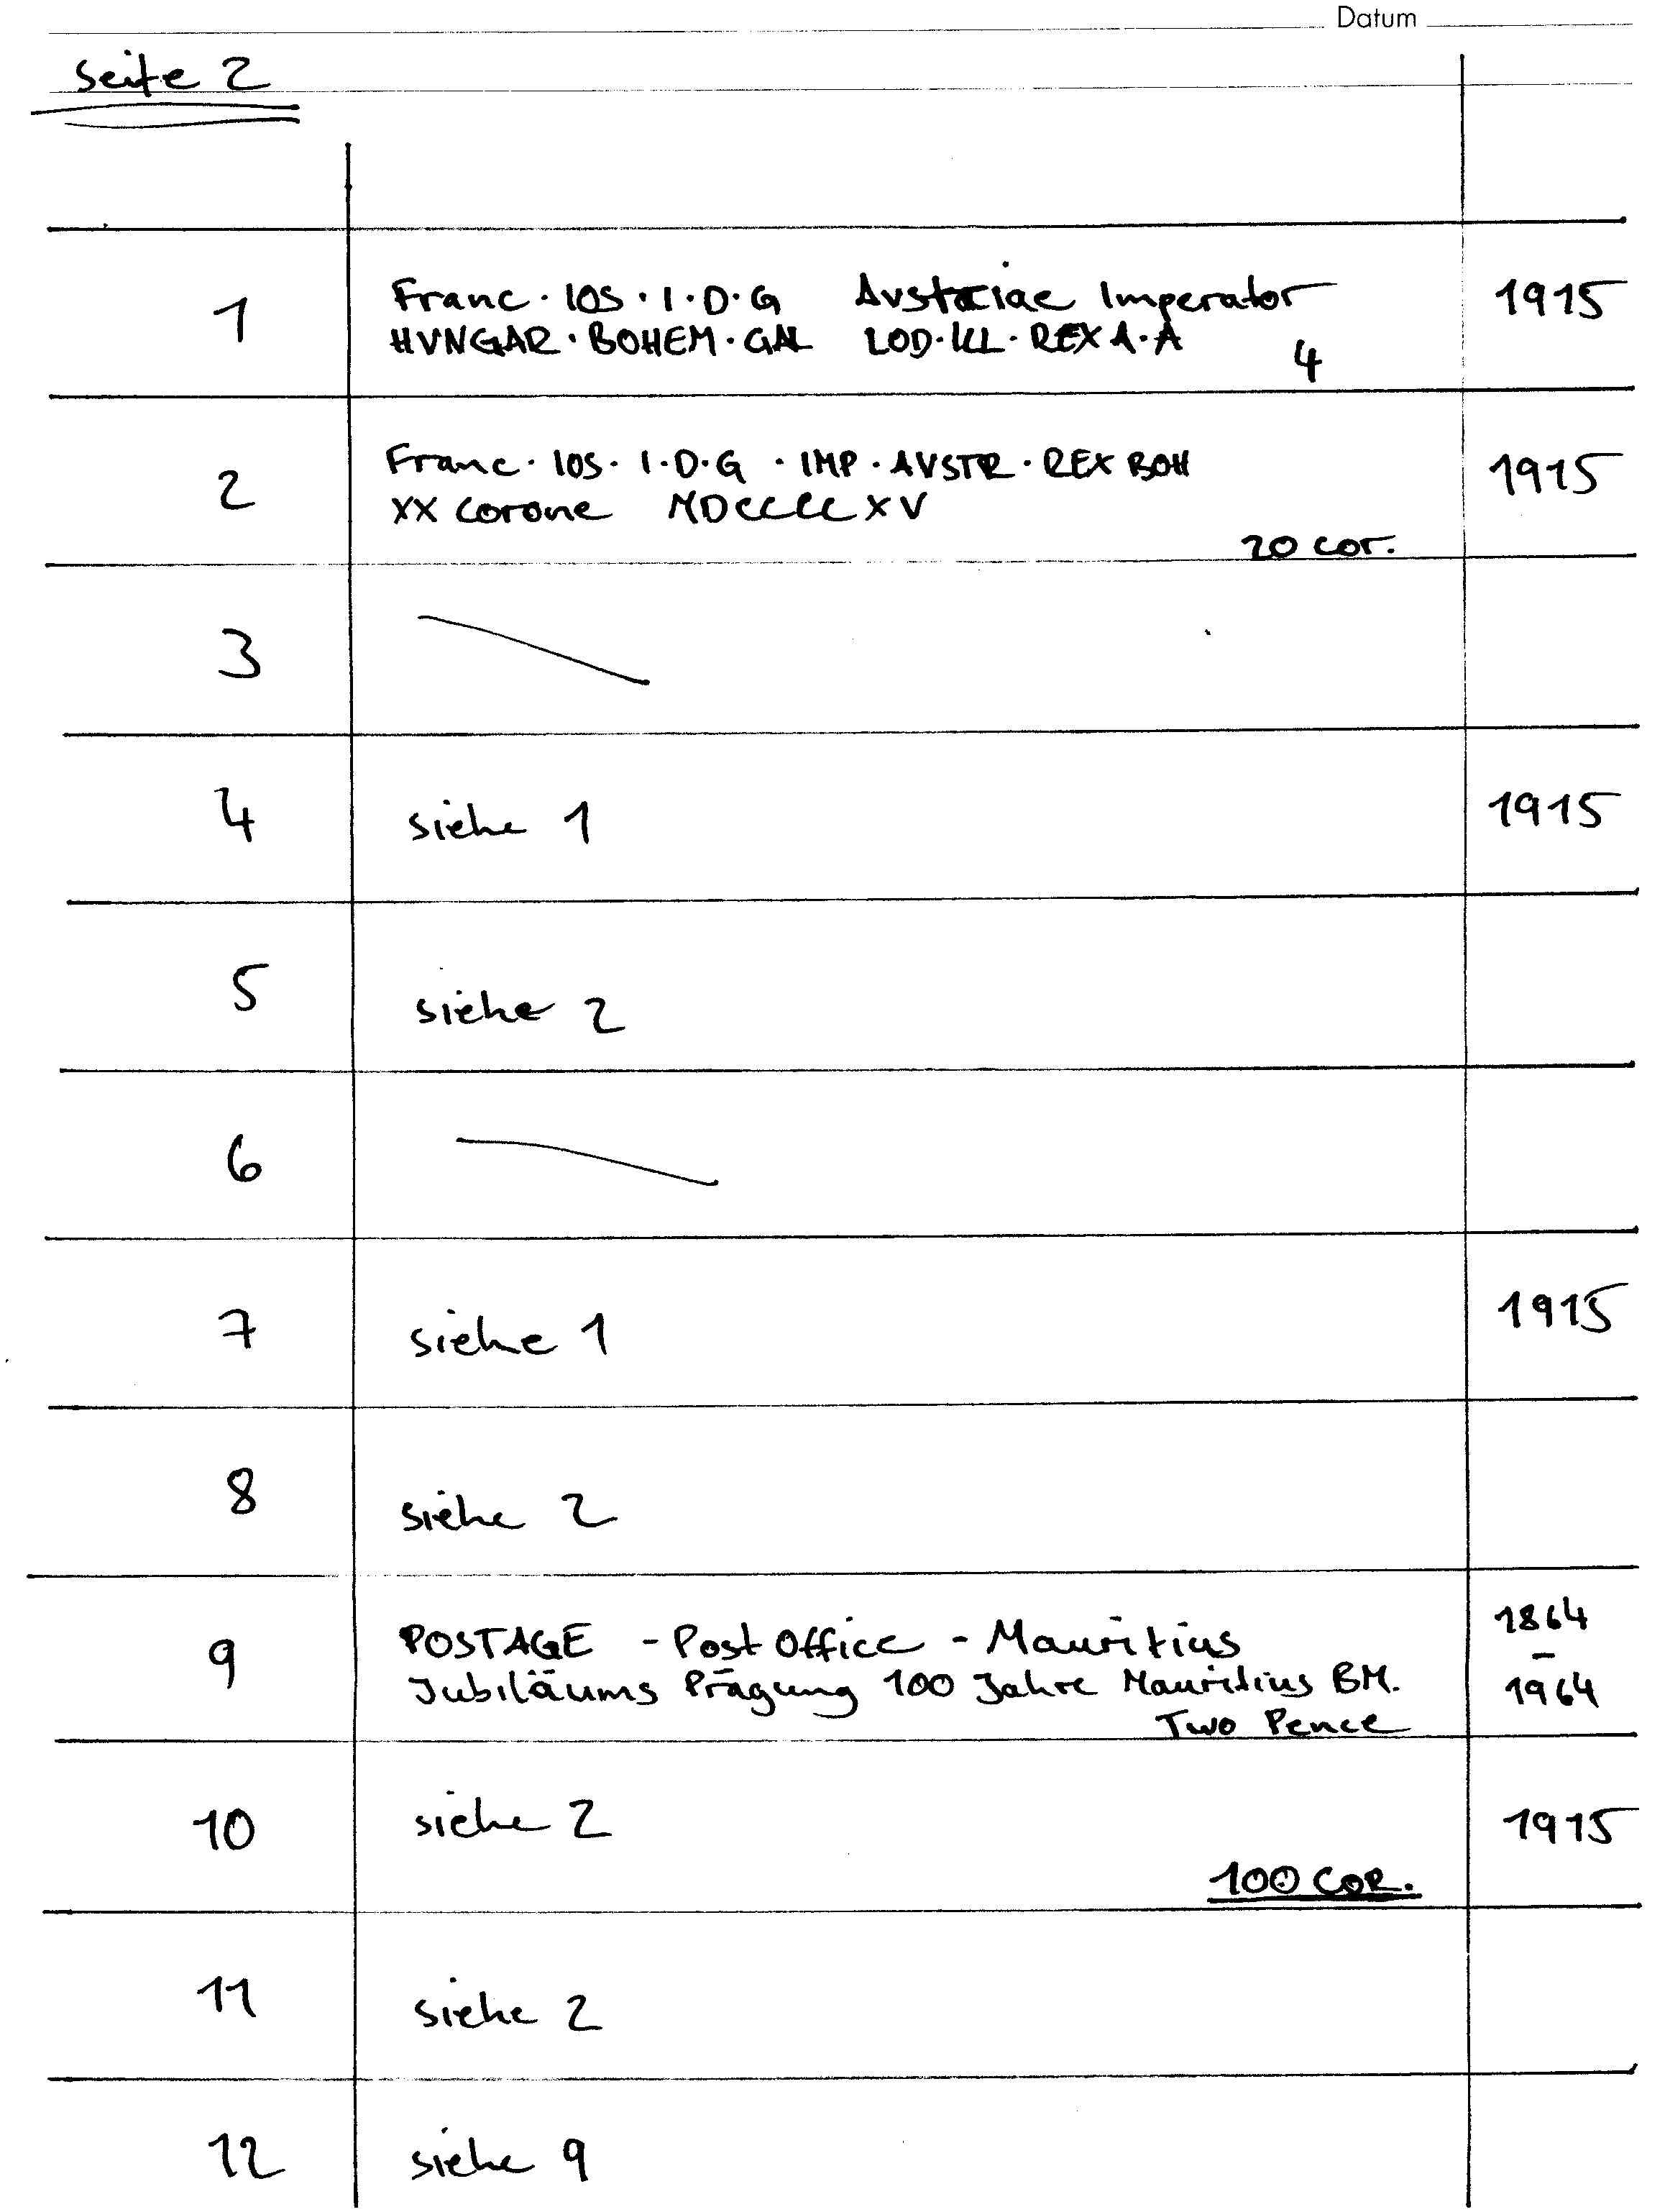 Datum
Seite 2
1 Franc · IOS · I · D · G Avstriae Imperator 1915
HVNGAR · BOHEM · GAL LOD · ILL · REX A · A
4
2 Franc · IOS · I · D · G · IMP · AVSTR · REX BOH 1915
XX Corone MDCCCCXV
20 cor.
3
4 siehe 1 1915
5 siehe 2
6
7 siehe 1 1915
8 siehe 2
9 POSTAGE - Post Office - Mauritius 1864
-
Jubiläums Prägung 100 Jahre Mauritius BM. 1964
Two Pence
10 siehe 2 1915
100 COR.
11 siehe 2
12 siehe 9